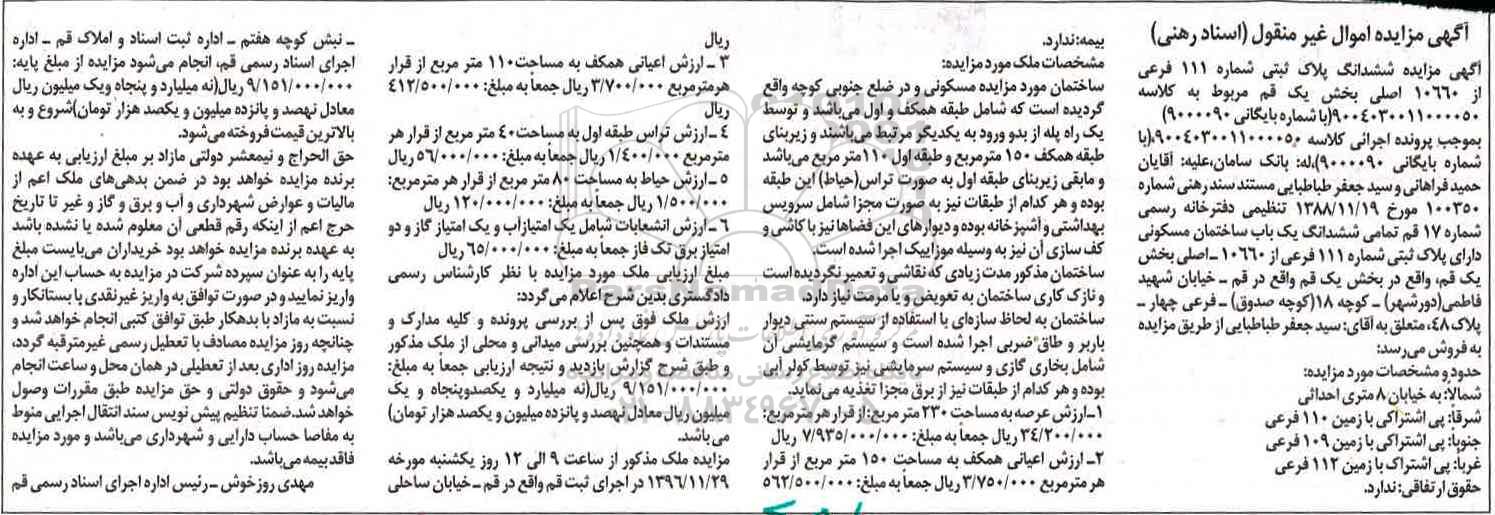 آگهی مزایده اموال غیر منقول (اسناد رهنی)
آگهی مزایده ششدانگ پلاک ثبتی شماره ۱۱۱ فرعی
از ۱۰۶۶۰ اصلی بخش یک قم مربوط به کلاسه
۹۰۰۴۰۳۰۰۱۱۰۰۰۰۵۰(با شماره بایگانی ۹۰۰۰۰۹۰)
بموجب پرونده اجرائی کلاسه ۹۰۰۴۰۳۰۰۱۱۰۰۰۰۵۰(با
شماره بایگانی ۹۰۰۰۰۹۰)،له: بانک سامان،علیه: آقایان
حمید فراهانی و سید جعفر طباطبایی مستند سند رهنی شماره
۱۰۰۳۵۰ مورخ ۱۳۸۸/۱۱/۱۹ تنظیمی دفترخانه رسمی
شماره ۱۷ قم تمامی ششدانگ یک باب ساختمان مسکونی
دارای پلاک ثبتی شماره ۱۱۱ فرعی از ۱۰۶۶۰ ـ اصلی بخش
یک قم، واقع در بخش یک قم واقع در قم ـ خیابان شهید
فاطمی(دورشهر) ـ کوچه ۱۸(کوچه صدوق) ـ فرعی چهار ـ
پلاک ۴۸، متعلق به آقای: سید جعفر طباطبایی از طریق مزایده
به فروش می‌رسد:
حدود و مشخصات مورد مزایده:
شمالا: به خیابان ۸ متری احداثی
شرقا: پی اشتراکی با زمین ۱۱۰ فرعی
جنوبا: پی اشتراکی با زمین ۱۰۹ فرعی
غربا: پی اشتراک با زمین ۱۱۲ فرعی
حقوق ارتفاقی: ندارد.
بیمه: ندارد.
مشخصات ملک مورد مزایده:
ساختمان مورد مزایده مسکونی و در ضلع جنوبی کوچه واقع
گردیده است که شامل طبقه همکف و اول می‌باشد و توسط
یک راه پله از بدو ورود به یکدیگر مرتبط می‌باشند و زیربنای
طبقه همکف ۱۵۰ مترمربع و طبقه اول ۱۱۰ متر مربع می‌باشد
و مابقی زیربنای طبقه اول به صورت تراس(حیاط) این طبقه
بوده و هر کدام از طبقات نیز به صورت مجزا شامل سرویس
بهداشتی و آشپزخانه بوده و دیوارهای این فضاها نیز با کاشی و
کف سازی آن نیز به وسیله موزاییک اجرا شده است.
ساختمان مذکور مدت زیادی که نقاشی و تعمیر نگردیده است
و نازک کاری ساختمان به تعویض و یا مرمت نیاز دارد.
ساختمان به لحاظ سازه‌ای با استفاده از سیستم سنتی دیوار
باربر و طاق ضربی اجرا شده است و سیستم گرمایشی آن
شامل بخاری گازی و سیستم سرمایشی نیز توسط کولر آبی
بوده و هر کدام از طبقات نیز از برق مجزا تغذیه می‌نماید.
۱ـ ارزش عرصه به مساحت ۲۳۰ متر مربع: از قرار هر مترمربع:
۳۴/۲۰۰/۰۰۰ ریال جمعاً به مبلغ: ۷/۹۳۵/۰۰۰/۰۰۰ ریال
۲ـ ارزش اعیانی همکف به مساحت ۱۵۰ متر مربع از قرار
هر مترمربع ۳/۷۵۰/۰۰۰ ریال جمعاً به مبلغ: ۵۶۲/۵۰۰/۰۰۰
ریال
۳ ـ ارزش اعیانی همکف به مساحت ۱۱۰ متر مربع از قرار
هر مترمربع ۳/۷۰۰/۰۰۰ ریال جمعاً به مبلغ: ۴۱۲/۵۰۰/۰۰۰
ریال
۴ ـ ارزش تراس طبقه اول به مساحت ۴۰ متر مربع از قرار هر
مترمربع ۱/۴۰۰/۰۰۰ ریال جمعاً به مبلغ: ۵۶/۰۰۰/۰۰۰ ریال
۵ ـ ارزش حیاط به مساحت ۸۰ متر مربع از قرار هر مترمربع:
۱/۵۰۰/۰۰۰ ریال جمعاً به مبلغ: ۱۲۰/۰۰۰/۰۰۰ ریال
۶ ـ ارزش انشعابات شامل یک امتیاز آب و یک امتیاز گاز و دو
امتیاز برق تک فاز جمعاً به مبلغ: ۶۵/۰۰۰/۰۰۰ ریال
مبلغ ارزیابی ملک مورد مزایده با نظر کارشناس رسمی
دادگستری بدین شرح اعلام می‌گردد:
ارزش ملک فوق پس از بررسی پرونده و کلیه مدارک و
مستندات و همچنین بررسی میدانی و محلی از ملک مذکور
و طبق شرح گزارش بازدید و نتیجه ارزیابی جمعاً به مبلغ:
۹/۱۵۱/۰۰۰/۰۰۰ ریال(نه میلیارد و یکصدوپنجاه و یک
میلیون ریال معادل نهصد و پانزده میلیون و یکصد هزار تومان)
می باشد.
مزایده ملک مذکور از ساعت ۹ الی ۱۲ روز یکشنبه مورخه
۱۳۹۶/۱۱/۲۹ در اجرای ثبت قم واقع در قم ـ خیابان ساحلی
ـ نبش کوچه هفتم ـ اداره ثبت اسناد و املاک قم ـ اداره
اجرای اسناد رسمی قم، انجام می‌شود مزایده از مبلغ پایه:
۹/۱۵۱/۰۰۰/۰۰۰ ریال(نه میلیارد و پنجاه ویک میلیون ریال
معادل نهصد و پانزده میلیون و یکصد هزار تومان)شروع و به
بالاترین قیمت فروخته می‌شود.
حق الحراج و نیمعشر دولتی مازاد بر مبلغ ارزیابی به عهده
برنده مزایده خواهد بود در ضمن بدهی‌های ملک اعم از
مالیات و عوارض شهرداری و آب و برق و گاز و غیر تا تاریخ
حرج اعم از اینکه رقم قطعی آن معلوم شده یا نشده باشد
به عهده برنده مزایده خواهد بود خریداران می‌بایست مبلغ
پایه را به عنوان سپرده شرکت در مزایده به حساب این اداره
واریز نمایید و در صورت توافق به واریز غیرنقدی با بستانکار و
نسبت به مازاد با بدهکار طبق توافق کتبی انجام خواهد شد و
چنانچه روز مزایده مصادف با تعطیل رسمی غیرمترقبه گردد،
مزایده روز اداری بعد از تعطیلی در همان محل و ساعت انجام
می‌شود و حقوق دولتی و حق مزایده طبق مقررات وصول
خواهد شد.ضمنا تنظیم پیش نویس سند انتقال اجرایی منوط
به مفاصا حساب دارایی و شهرداری می‌باشد و مورد مزایده
فاقد بیمه می‌باشد.
مهدی روزخوش ـ رئیس اداره اجرای اسناد رسمی قم
ParsNamadData